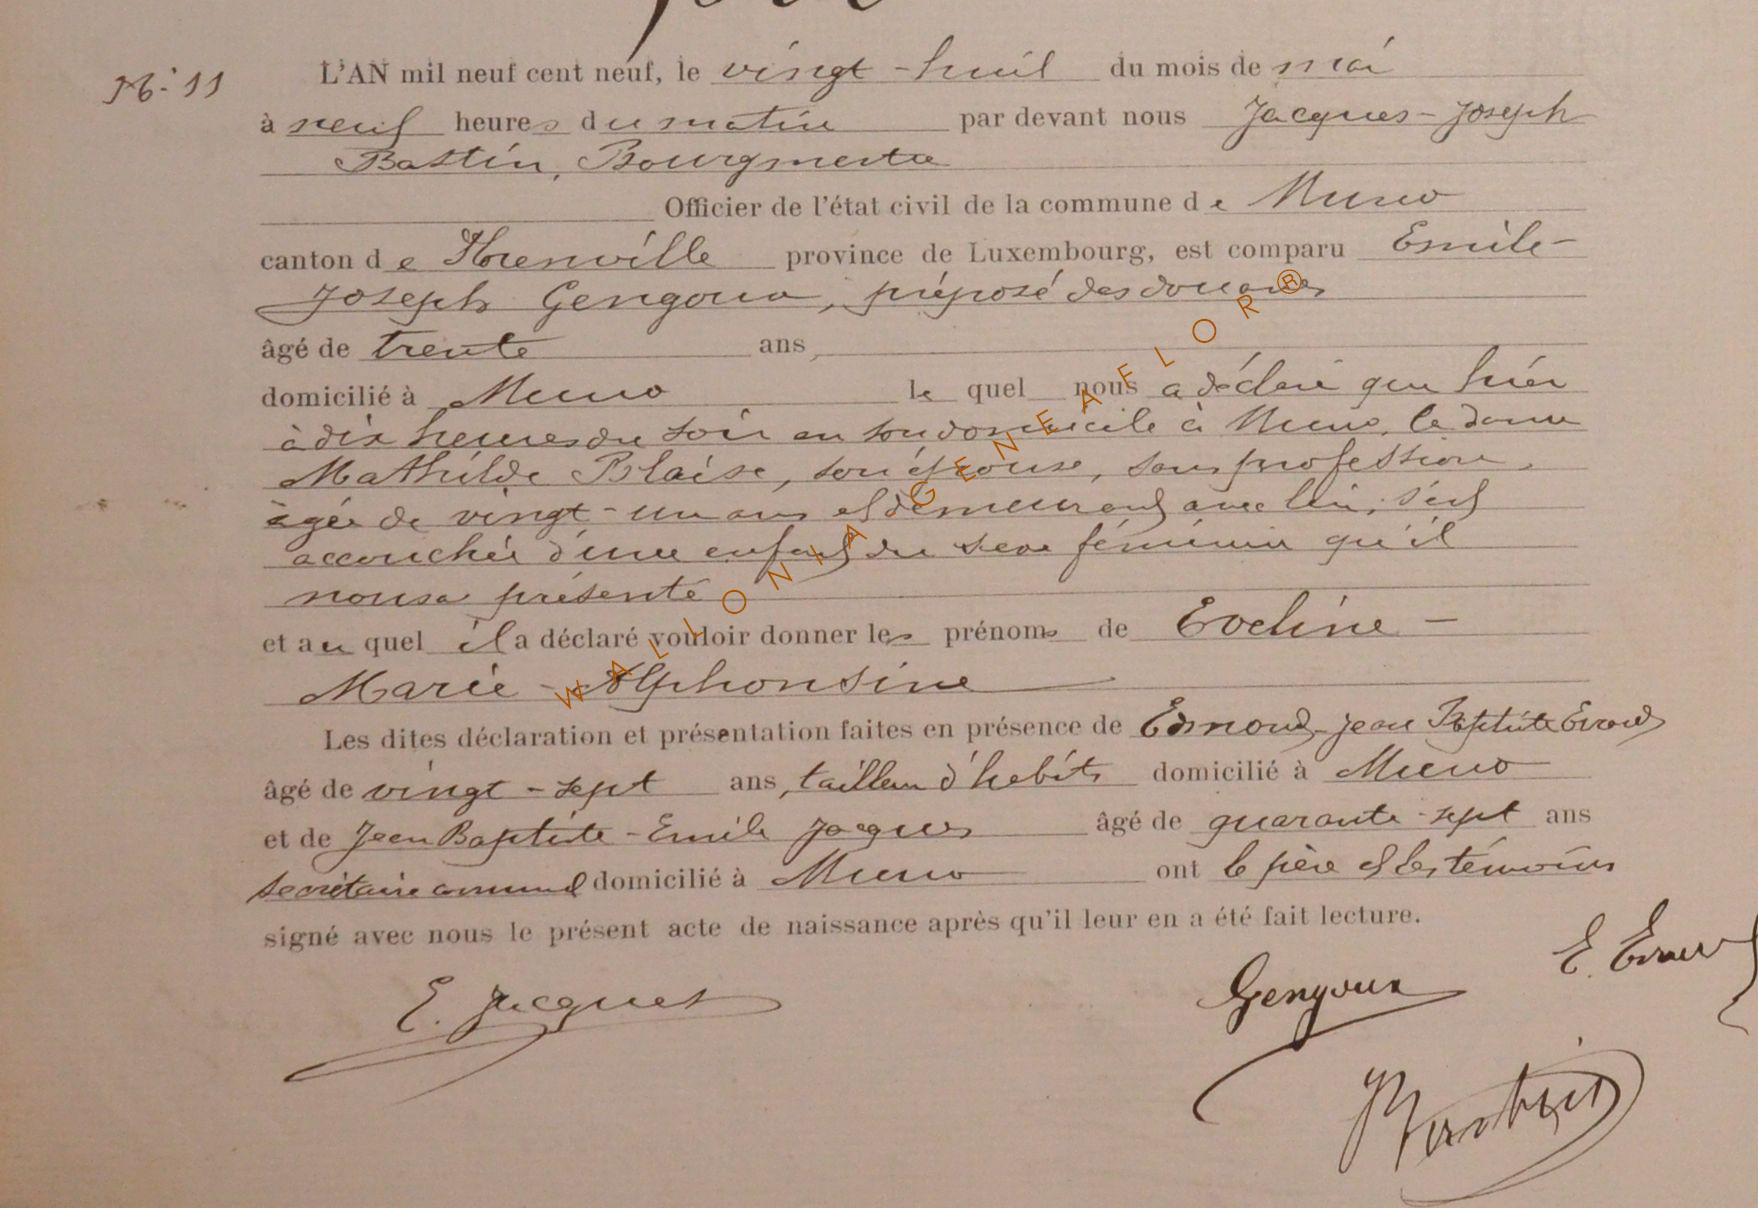 No. 11
L'AN mil neuf cent neuf, le vingt-huit du mois de mai
à neuf heures du matin par devant nous Jacques-Joseph
Bastin, Bourgmestre
Officier de l'état civil de la commune de Muno
canton de Florenville province de Luxembourg, est comparu Emile-
Joseph Gengoux, préposé des douanes
âgé de trente ans,
domicilié à Muno le quel nous a déclaré que hier
à dix heures du soir en son domicile à Muno, la dame
Mathilde Blaise, son épouse, sans profession,
âgée de vingt-un ans et demeurant avec lui, s'est
accouchée d'une enfant du sexe féminin qu'il
nous a présenté
et au quel il a déclaré vouloir donner les prénoms de Eveline-
Marie-Alphonsine
Les dites déclaration et présentation faites en présence de Edmond-jean Baptiste Evrard
âgé de vingt-sept ans, tailleur d'habits domicilié à Muno
et de Jean Baptiste-Emile Jacques âgé de quarante-sept ans
secrétaire communal domicilié à Muno ont le père et les témoins
signé avec nous le présent acte de naissance après qu'il leur en a été fait lecture.
E. Jacques Gengoux E. Evrard
Bastin
WALLONIA GENEAFLOR ®